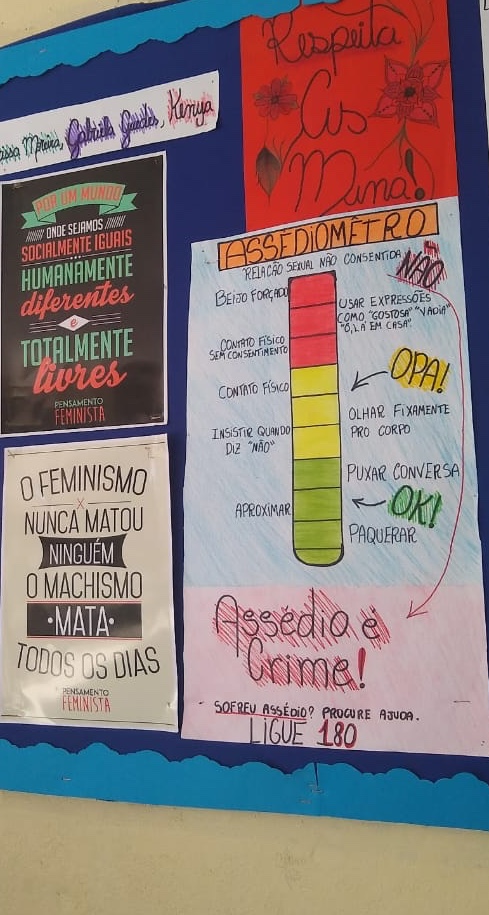 Gabriela Guedes, Kenya
Respeita
as
Mina!
POR UM MUNDO
ONDE SEJAMOS
SOCIALMENTE IGUAIS
HUMANAMENTE
diferentes
e
TOTALMENTE
livres
PENSAMENTO
FEMINISTA
O FEMINISMO
NUNCA MATOU
NINGUÉM
O MACHISMO
•MATA•
TODOS OS DIAS
PENSAMENTO
FEMINISTA
ASSÉDIOMÊTRO
RELAÇÃO SEXUAL NÃO CONSENTIDA
NÃO
BEIJO FORÇADO
USAR EXPRESSÕES
COMO "GOSTOSA" "VADIA"
"Ó, LÁ EM CASA"
CONTATO FÍSICO
SEM CONSENTIMENTO
OPA!
CONTATO FÍSICO
OLHAR FIXAMENTE
PRO CORPO
INSISTIR QUANDO
DIZ "NÃO"
PUXAR CONVERSA
OK!
APROXIMAR
PAQUERAR
Assédio é
Crime!
SOFREU ASSÉDIO? PROCURE AJUDA.
LIGUE 180